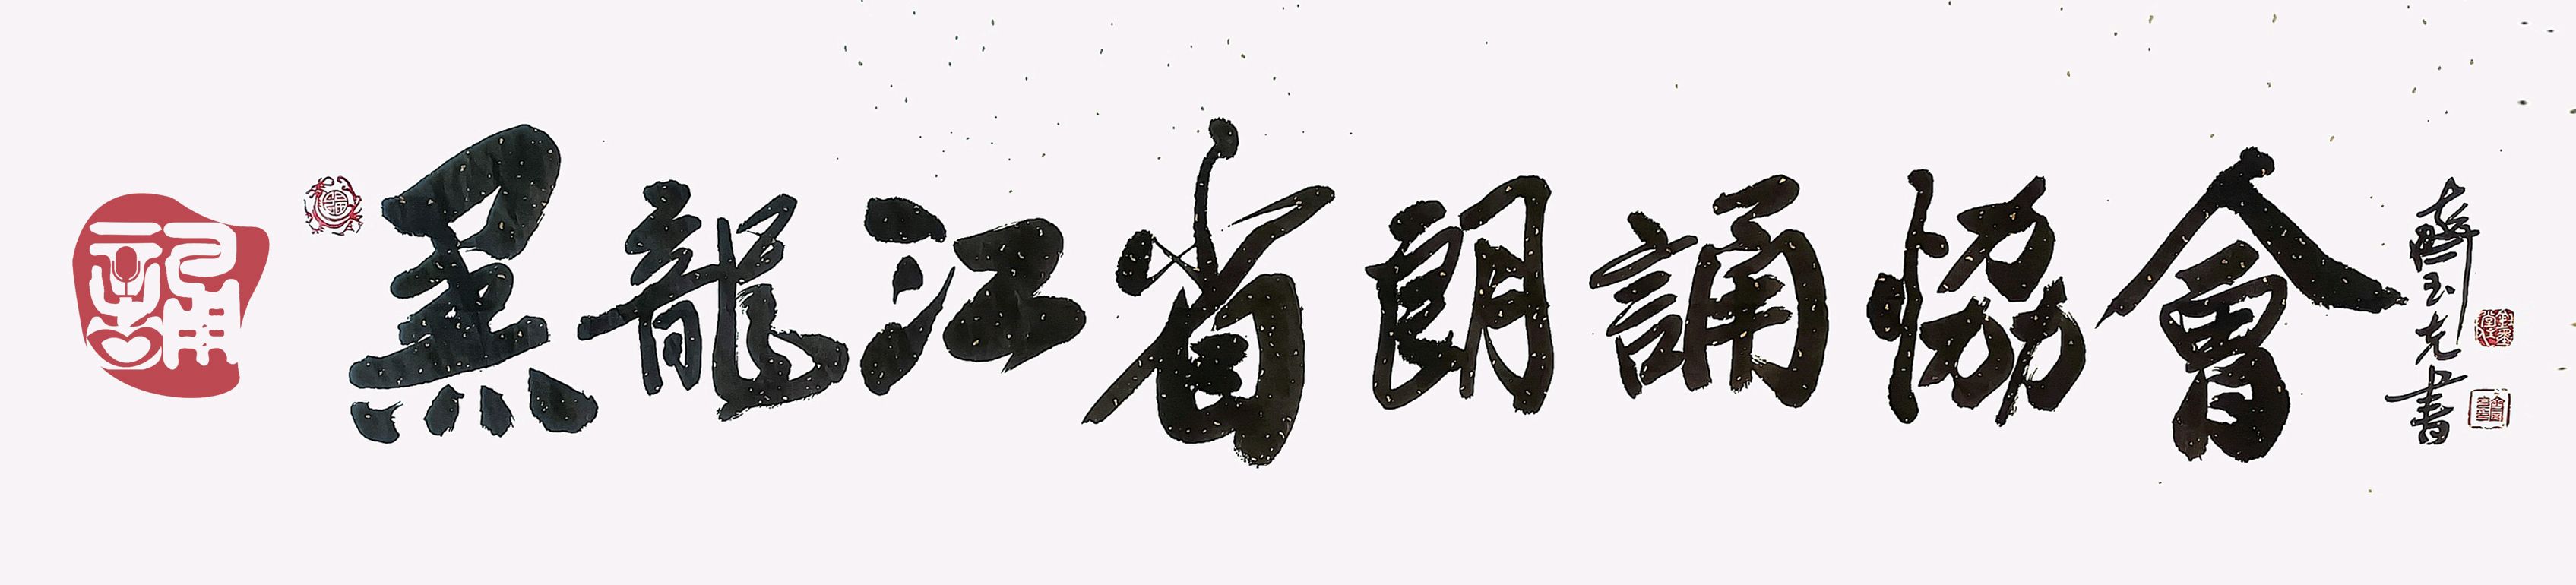 誦
黑龍江省朗誦協會
齊玉克書